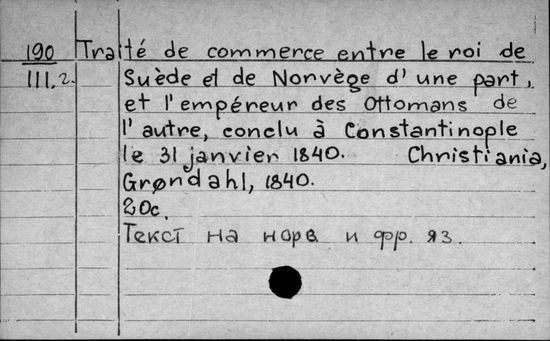 190 Traité de commerce entre le roi de
III.2. Suède et de Norvège d'une part,
et l'empéreur des Ottomans de
l'autre, conclu à Constantinople
le 31 janvier 1840. Christiania,
Grøndahl, 1840.
20c.
Текст на норв. и фр. яз.